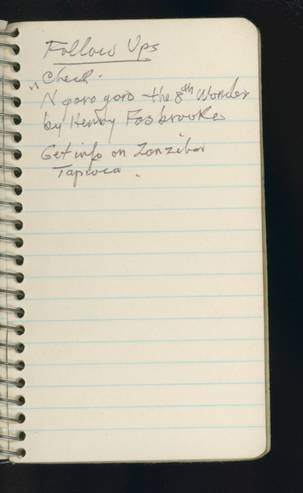 Follow Ups
"Check.
Ngorogoro the 8th Wonder
by Henry Fosbrooke
Get info on Zanzibar
Tapioca.